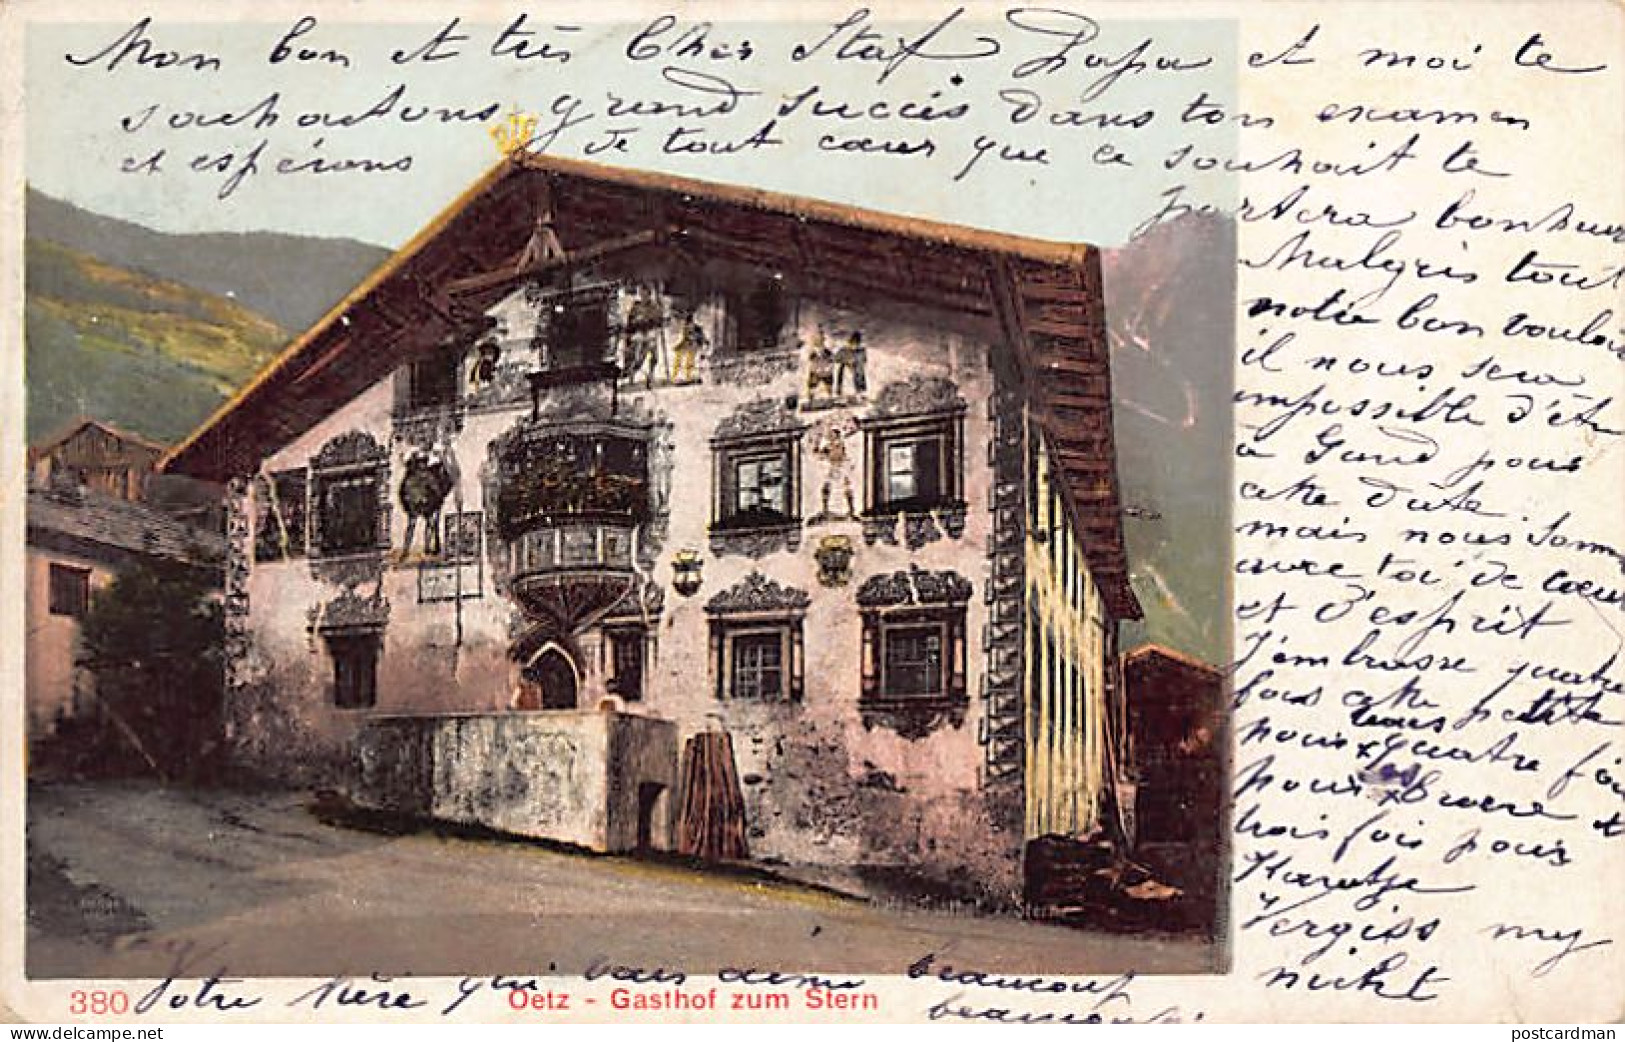 Mon bon et très Cher Staf Papa et moi te
souhaitons grand succès dans ton examen
et espérons de tout cœur que ce souhait te
portera bonheur
Malgré tout
notre bon vouloir
il nous sera
impossible d'être
à Gand pour
cette date
mais nous somm
avec toi de cœur
et d'esprit
J'embrasse quatre
fois cette petite
pour vous quatre fois
pour
trois fois pour
Karatje
Vergiss my
nicht
Votre Mère qui vous aime beaucoup
beaucoup
380
Oetz - Gasthof zum Stern
postcardman